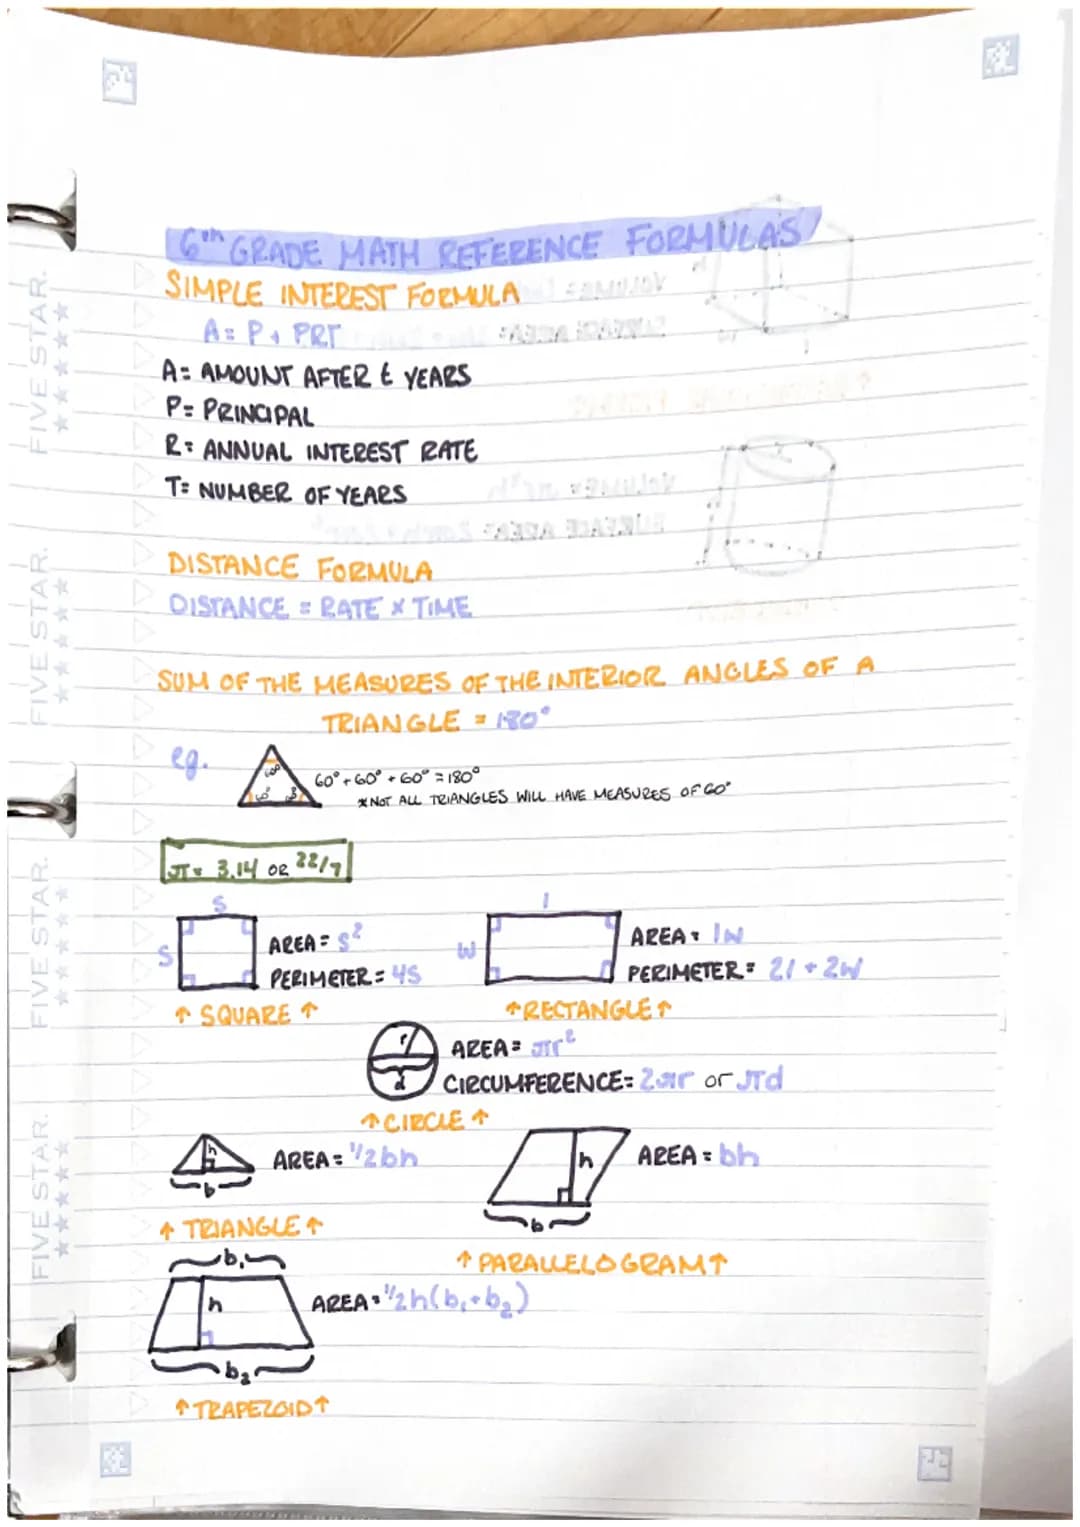 6th GRADE MATH REFERENCE FORMULAS
SIMPLE INTEREST FORMULA
A = P + PRT
A = AMOUNT AFTER t YEARS
P = PRINCIPAL
R = ANNUAL INTEREST RATE
T = NUMBER OF YEARS
DISTANCE FORMULA
DISTANCE = RATE × TIME
SUM OF THE MEASURES OF THE INTERIOR ANGLES OF A
TRIANGLE = 180°
eg.
60°
60° 60°
60° + 60° + 60° = 180°
*NOT ALL TRIANGLES WILL HAVE MEASURES OF 60°
π = 3.14 OR 22/7
S
S
AREA = S²
PERIMETER = 4S
↑ SQUARE ↑
l
W
AREA = lW
PERIMETER = 2l + 2W
↑ RECTANGLE ↑
r
d
AREA = πr²
CIRCUMFERENCE = 2πr or πd
↑ CIRCLE ↑
h
b
AREA = 1/2bh
↑ TRIANGLE ↑
h
b
AREA = bh
↑ PARALLELOGRAM ↑
b₁
h
b₂
AREA = 1/2h(b₁ + b₂)
↑ TRAPEZOID ↑
FIVE STAR.
FIVE STAR.
FIVE STAR.
FIVE STAR.